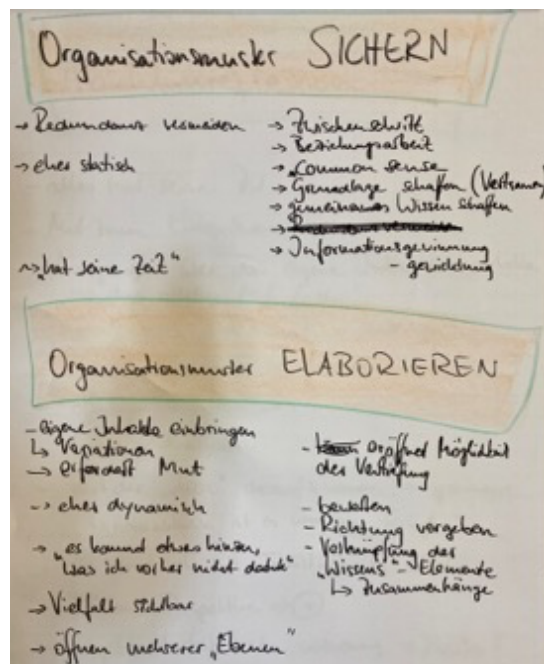 Organisationsmuster SICHERN
→ Redundanz vermeiden
→ eher statisch
→ "hat seine Zeit"
→ Zwischenschritt
→ Beziehungsarbeit
→ "Common sense
→ Grundlage schaffen (Vertrauen)
→ gemeinsames Wissen schaffen
→ Informationsgewinnung
Organisationsmuster ELABORIEREN
- eigene Inhalte einbringen
↳ Variationen
→ erfordert Mut
→ eher dynamisch
→ "es kommt etwas hinzu,
was ich vorher nicht dachte"
→ Vielfalt sichtbar
→ öffnen mehrerer "Ebenen"
- eröffnet Möglichkeit
der Vertiefung
- bewerten
- Richtung vorgeben
- Verknüpfung der
"Wissens"-Elemente
↳ Zusammenhänge